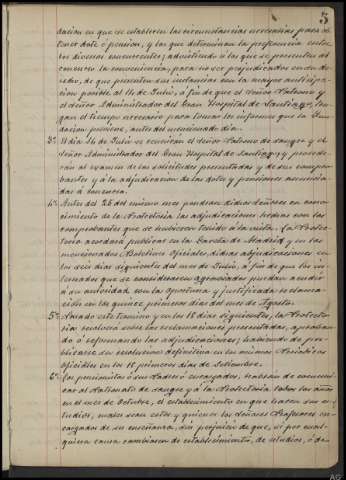 3
dación en que se establecen las circunstancias necesarias para ob-
tener dote ó pension, y las que determinan la preferencia entre
los diversos concurrentes; advirtiendo á los que se presenten al
concurso la conveniencia, para no ser perjudicados en su de-
recho, de que presenten sus instancias con la mayor anticipa-
cion posible al 16 de Julio, á fin de que el Señor Patrono y
el Señor Administrador del Gran Hospital de Santiago, ten-
gan el tiempo necesario para tomar los informes que la Fun-
dacion previene, antes del mencionado dia.
3ª El dia 16 de Julio se reunirán el Señor Patrono de sangre y el
Señor Administrador del Gran Hospital de Santiago y procede-
rán al exámen de las solicitudes presentadas y de sus compro-
bantes y á la adjudicacion de las dotes y pensiones anuncia-
das á concurso.
4ª Antes del 25 del mismo mes pondrán dichos Señores en cono-
cimiento de la Protectoría las adjudicaciones hechas con los
comprobantes que se hubiesen tenido á la vista. La Protec-
toría acordará publicar en la Gaceta de Madrid y en los
mencionados Boletines Oficiales, dichas adjudicaciones en
los seis dias siguientes del mes de Julio, á fin de que los in-
teresados que se consideraren agraviados puedan acudir
á su autoridad con la oportuna y justificada reclama-
ción en los quince primeros dias del mes de Agosto.
5ª Pasado este termino y en los 15 dias siguientes, la Protecto-
ría resolverá sobre las reclamaciones presentadas, aproban-
do ó reformando las adjudicaciones; habiendo de pu-
blicarse su resolucion definitiva en los mismos Periódicos
oficiales en los 15 primeros dias de Setiembre.
6ª Los pensionistas ó sus Padres ó encargados, habrán de comuni-
car al Patronato de sangre y á la Protectoría todos los años
en el mes de Octubre, el establecimiento en que hacen sus es-
tudios, cuales sean estos y quienes los Señores Profesores en-
cargados de su enseñanza, sin perjuicio de que, si por cual-
quiera causa cambiaren de establecimiento, de estudios, ó de